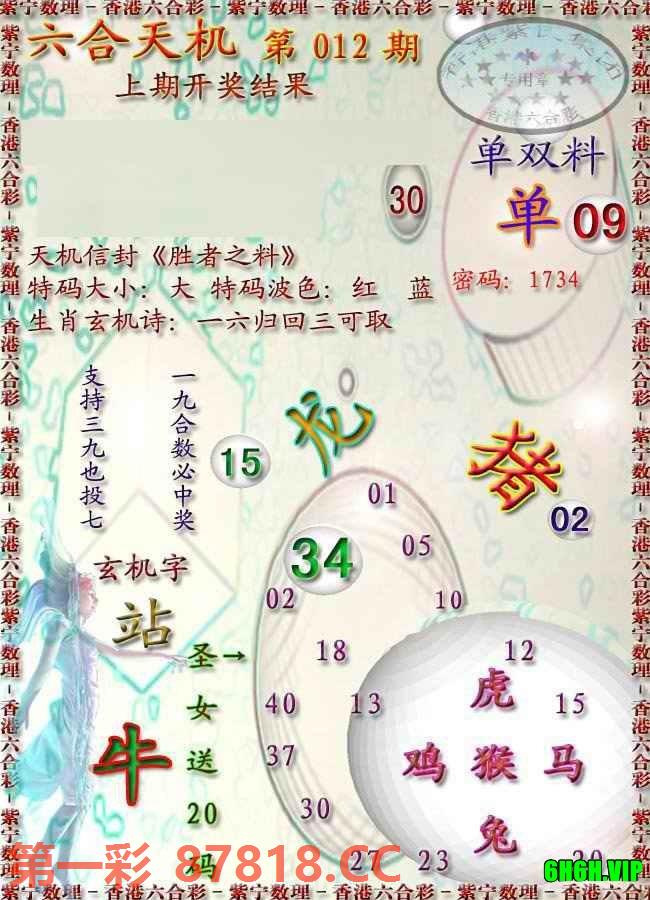 紫宁数理－香港六合彩－紫宁数理－香港六合彩－紫宁数理－香港六合彩－紫宁数理－香港六合彩
六合天机 第 012 期
上期开奖结果
专用章
香港六合彩
单双料
30
单 09
天机信封《胜者之料》
特码大小：大 特码波色：红 蓝
密码：1734
生肖玄机诗：一六归回三可取
一九合数必中奖
支持三九也投七
15
龙
猪
02
01
34
05
玄机字
02
10
站
圣→
女
送
20
码
18
12
虎
40
13
15
牛
37
鸡 猴 马
30
兔
27
23
第一彩 87818.CC
6H6H.VIP
紫宁数理－香港六合彩－紫宁数理－香港六合彩－紫宁数理－香港六合彩－紫宁数理－香港六合彩